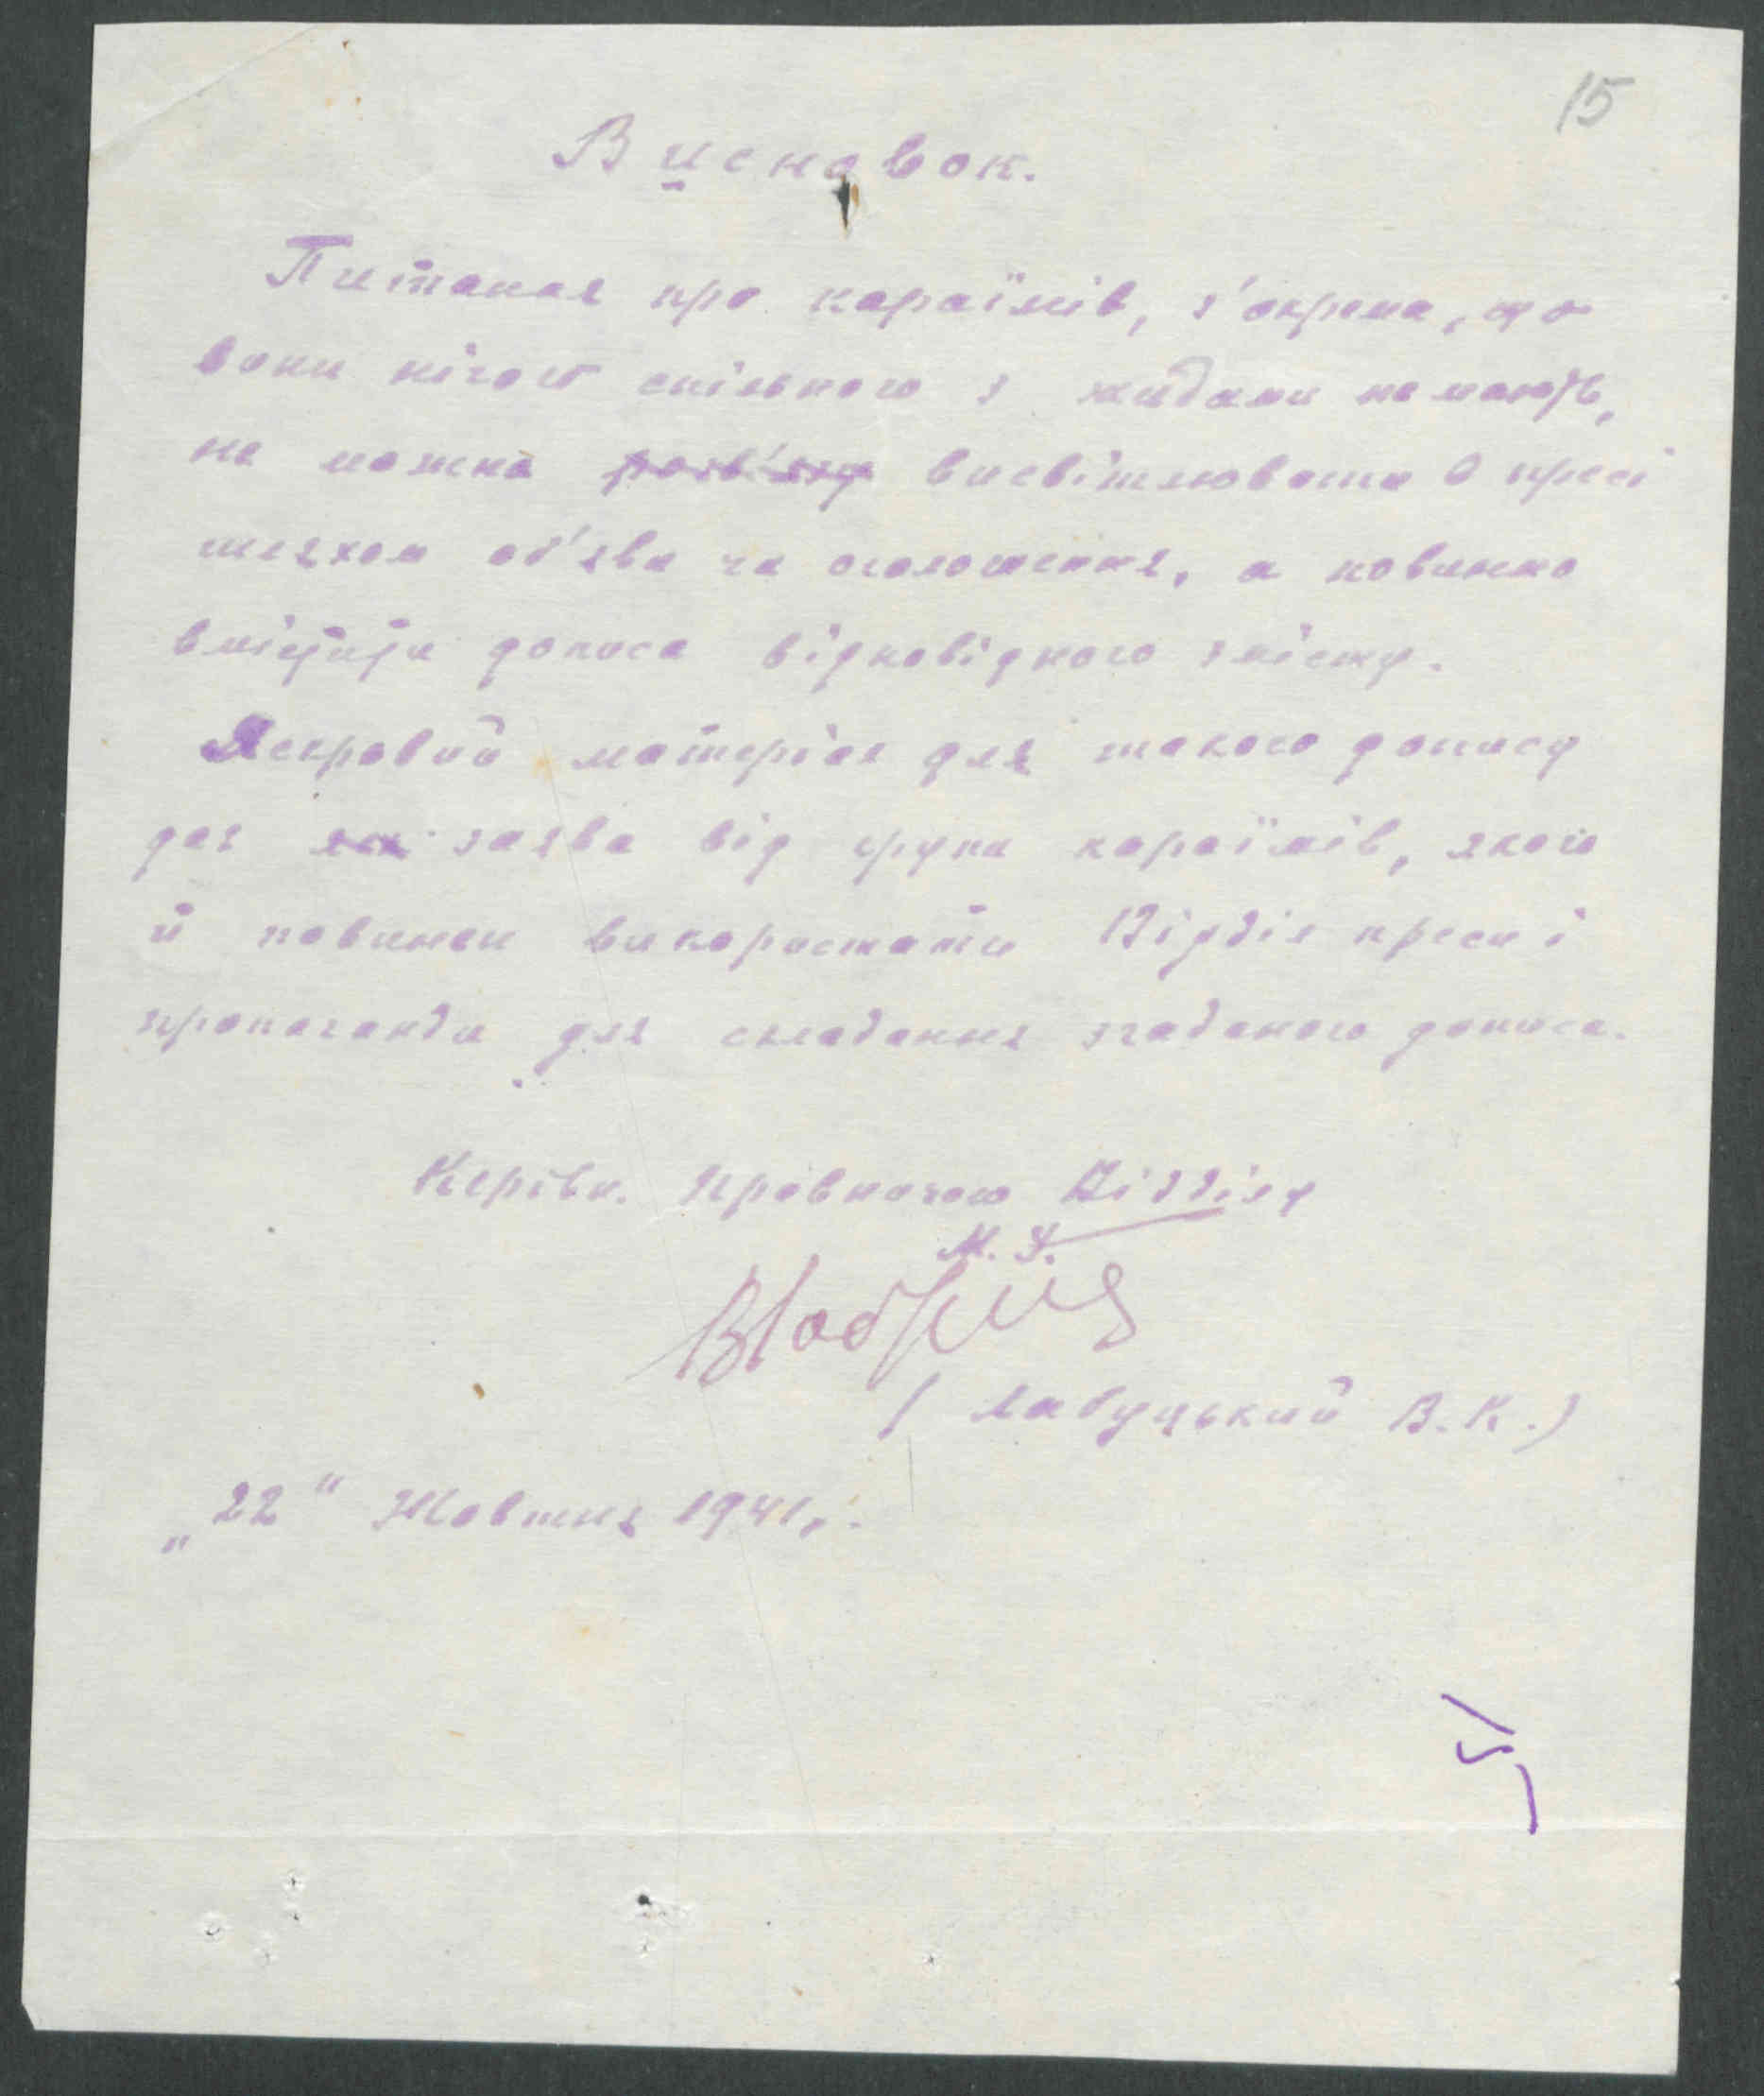 15
Висновок.
Питання про караїмів, з'окрема, що
вони нічого спільного з жидами не мають,
не можна висвітлювати в пресі
шляхом об'яви чи оголошення, а повинно
вмістити дописа відповідного змісту.
Яскравий матеріял для такого допису
дає заява від групи караїмів, якого
й повинен використати Відділ преси і
пропаганди для складання згаданого дописа.
Керівн. Правничого Відділу
М. У.
( Лабуцький В. К. )
„22" Жовтня 1941 р.